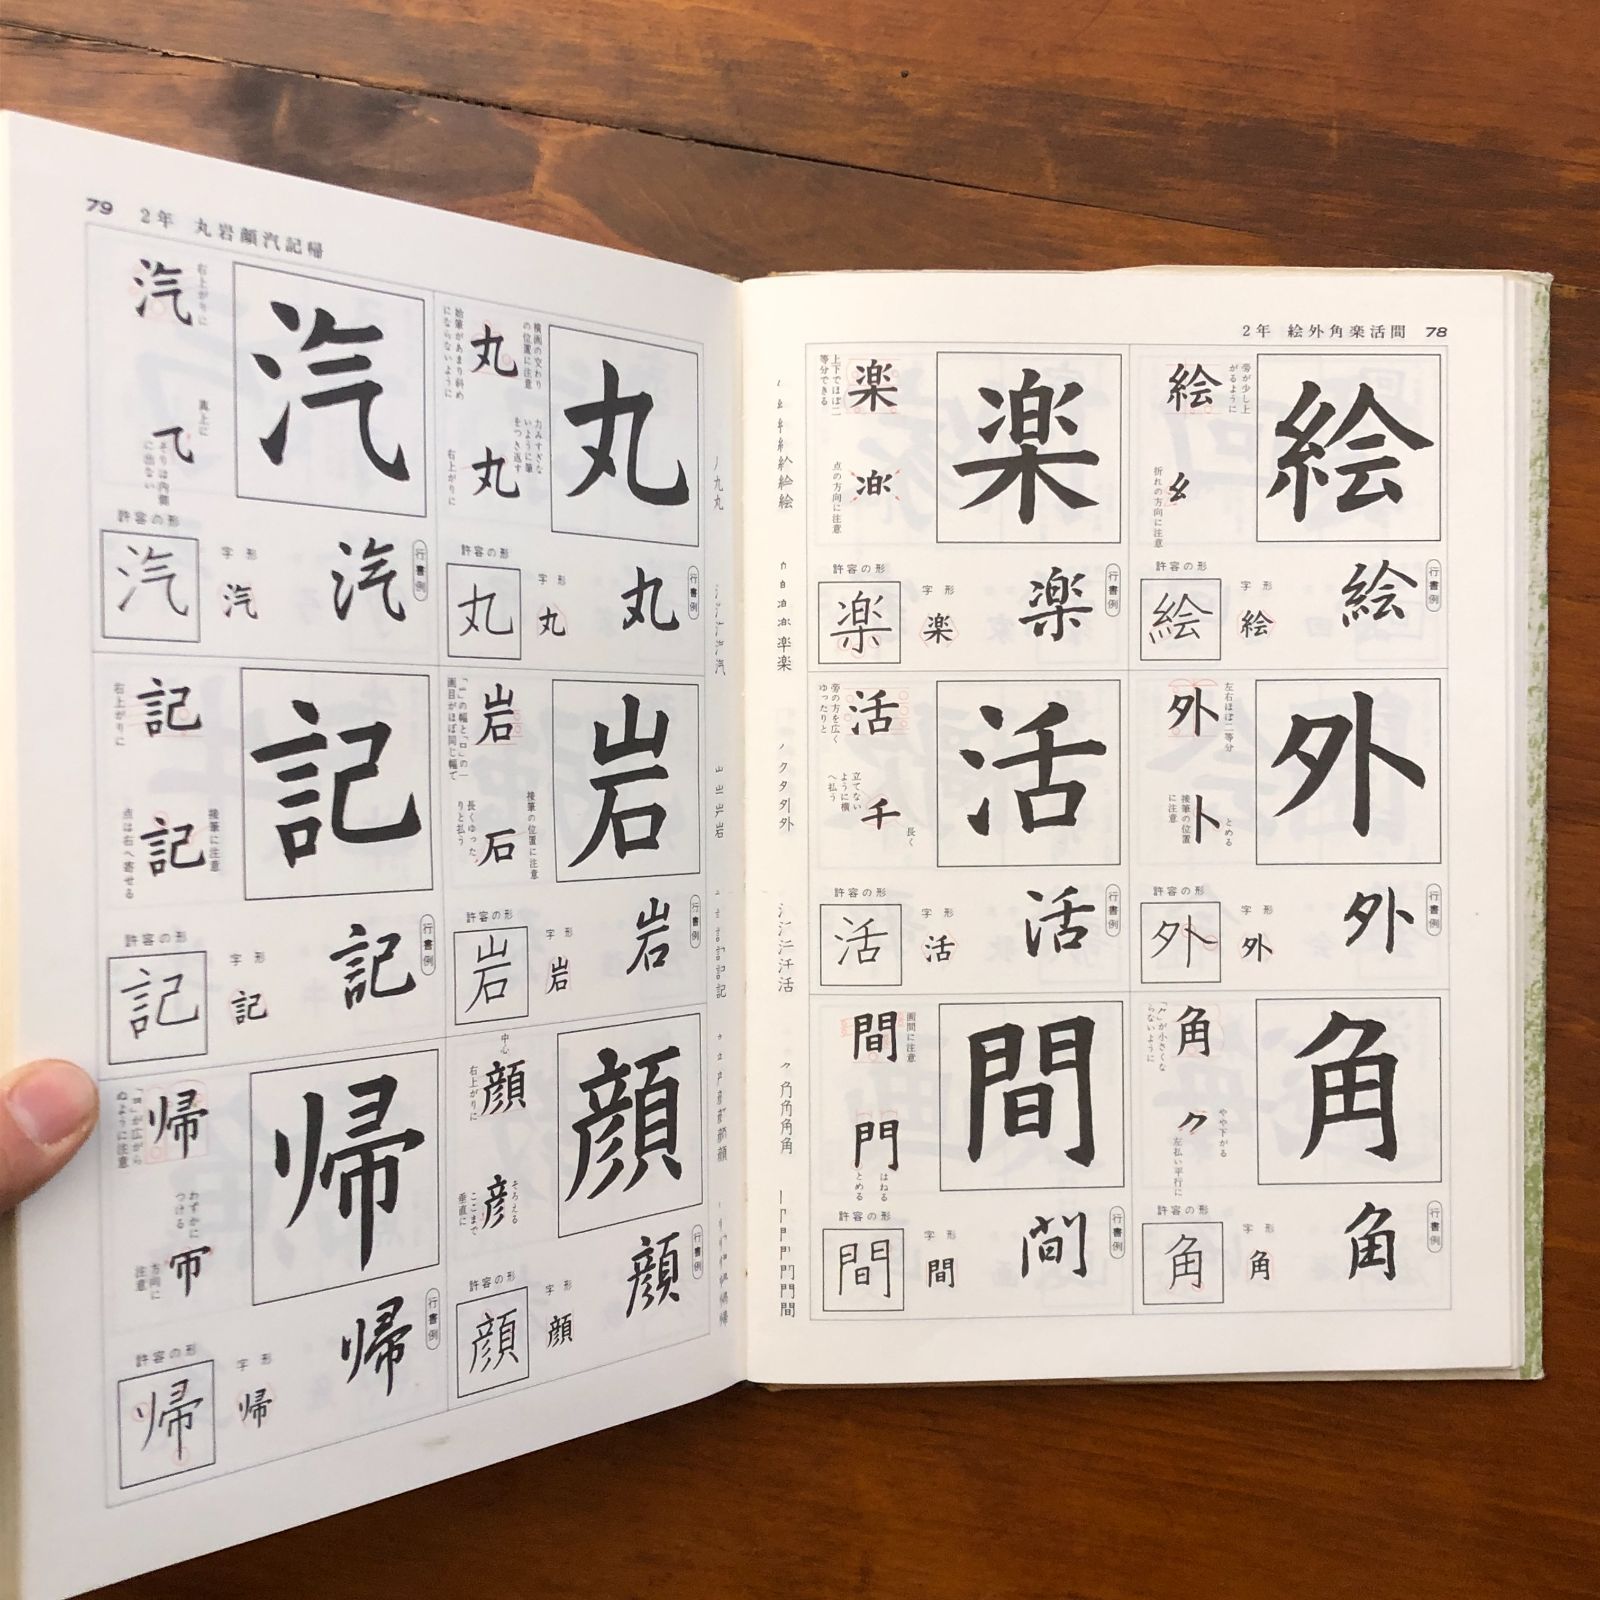 2年 絵外角楽活間 78
絵
旁が少し上
がるように
絵
折れの方向に注意
許容の形
絵
字形
絵
行書例
絵
外
左右ほぼ二等分
外
とめる
接筆の位置
に注意
許容の形
外
字形
外
行書例
外
角
「ク」が小さくな
らないように
角
やや下がる
左払い平行に
ク
許容の形
角
字形
角
行書例
角
楽
上下でほぼ二
等分できる
楽
点の方向に注意
許容の形
楽
字形
楽
行書例
楽
活
旁の方を広く
ゆったりと
活
立てない
ように横
へ払う
千
長く
許容の形
活
字形
活
行書例
活
間
画間に注意
間
門
はねる
とめる
許容の形
間
字形
間
行書例
間
79 2年 丸岩顔汽記帰
丸
横画の交わり
の位置に注意
始筆があまり斜め
にならないように
丸
力みすぎな
いように筆
をつき返す
右上がりに
丸
許容の形
丸
字形
丸
行書例
丸
岩
岩
接筆の位置に注意
長くゆった
りと払う
石
許容の形
岩
字形
岩
行書例
岩
顔
中心
右上がりに
顔
そろえる
ここまで
垂直に
彦
許容の形
顔
字形
顔
行書例
顔
汽
右上がりに
汽
真上に
そりは内側
に出ない
許容の形
汽
字形
汽
行書例
汽
記
右上がりに
記
接筆に注意
点は右へ寄せる
記
許容の形
記
字形
記
行書例
記
帰
帰
わずかに
つける
方向に
注意
許容の形
帰
字形
帰
行書例
帰